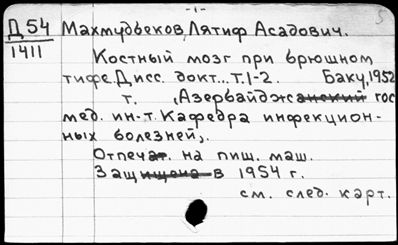 -1-
5
Д 54 Махмудбеков, Лятиф Асадович.
1411
Костный мозг при брюшном
тифе. Дисс. докт... Т.1-2. Баку, 1952
т. , Азербайджанский гос
мед. ин-т. Кафедра инфекцион-
ных болезней,.
Отпечат. на пиш. маш.
Защищена в 1954 г.
см. след. карт.